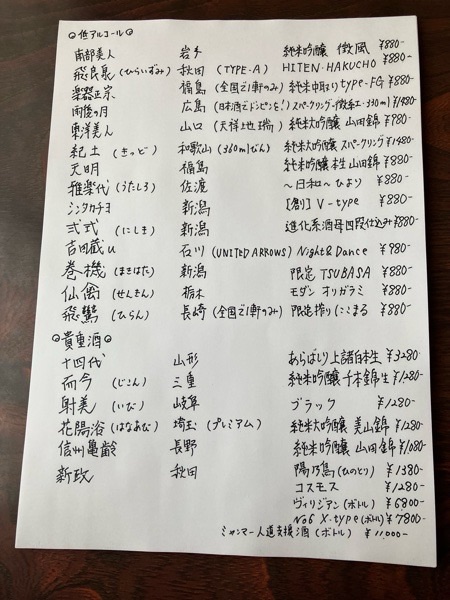 ◎低アルコール◎
南部美人 岩手 純米吟醸 微風 ¥880-
飛良泉(ひらいずみ) 秋田 (TYPE-A) HITEN-HAKUCHO ¥880-
楽器正宗 福島 (全国で1軒のみ) 純米中取り type-FG ¥880-
雨後の月 広島 (日本酒でドンピンを!) スパークリング-微発泡-330ml ¥1480-
東洋美人 山口 (天祥地瑞) 純米大吟醸 山田錦 ¥980-
紀土 (きっど) 和歌山(360mlびん) 純米大吟醸 スパークリング ¥1480-
天明 福島 純米吟醸 本生 山田錦 ¥880-
雅楽代(うたしろ) 佐渡 〜日和〜 ひより ¥880-
シンタカチヨ 新潟 [創] V-type ¥880-
弐式 (にしき) 新潟 進化系酒母四段仕込み ¥880-
吉田蔵u 石川 (UNITED ARROWS) Night & Dance ¥980-
巻機 (まきはた) 新潟 限定 TSUBASA ¥880-
仙禽 (せんきん) 栃木 モダン オリガラミ ¥880-
飛鸞 (ひらん) 長崎 (全国で1軒のみ) 限定搾り にこまる ¥880-
◎貴重酒◎
十四代 山形 あらばしり上諸白本生 ¥3280-
而今 (じこん) 三重 純米吟醸 千本錦生 ¥1280-
射美 (いび) 岐阜 ブラック ¥1280-
花陽浴 (はなあび) 埼玉 (プレミアム) 純米大吟醸 美山錦 ¥1280-
信州亀齢 長野 純米吟醸 山田錦 ¥1080-
新政 秋田 陽乃鳥(ひのとり) ¥1380-
コスモス ¥1280-
ヴィリジアン(ボトル) ¥6800-
No6 X-type(ボトル) ¥7800-
ミャンマー人道支援酒(ボトル) ¥11,000-